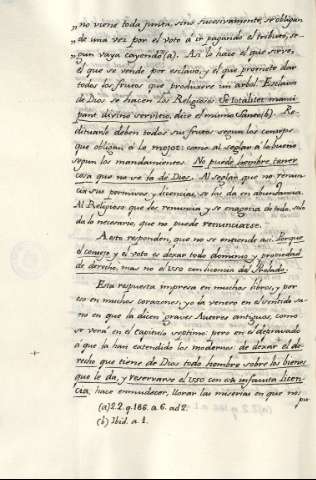 „ no viene toda junta, sino sucesivamente, se obligan
„ de una vez por el voto à ir pagando el tributo, se-
„ gun vaya cayendo (a). Asi lo hace el que sirve,
el que se vende por esclavo, y el que promete dar
todos los frutos que produxere un arbol. Esclavos
de Dios se hacen los Religiosos: Se totaliter manci-
pant divino servitio, dice el mismo Santo (b). Re-
dituarle deben todos sus frutos segun los consejos
que obligan à lo mejor: como al seglar à lo bueno
segun los mandamientos. No puede hombre tener
cosa que no se la dè Dios. Al seglar que no renun-
cia sus permisos, y licencias, se las da en abundancia.
Al Religioso que las renuncia y se enagena de todo, solo
da lo necesario, que no puede renunciarse.
A esto responden, que no se entiende asi. Porque
el consejo y el voto es dexar todo dominio y propiedad
de derecho, mas no el uso con licencia del Prelado.
Esta respuesta impresa en muchos libros, y por
eso en muchos corazones, yo la venero en el sentido sa-
no en que la dicen graves Autores antiguos, como
se verá en el capitulo septimo: pero en el depravado
a que la han extendido los modernos de dexar el de-
recho que tiene de Dios todo hombre sobre los bienes
que le da, y reservarse el uso con esa infausta licen-
cia, hace enmudecer, llorar las miserias en que nos
pu-
(a) 2.2. q. 186. a. 6. ad 2.
(b) Ibid. a. 1.